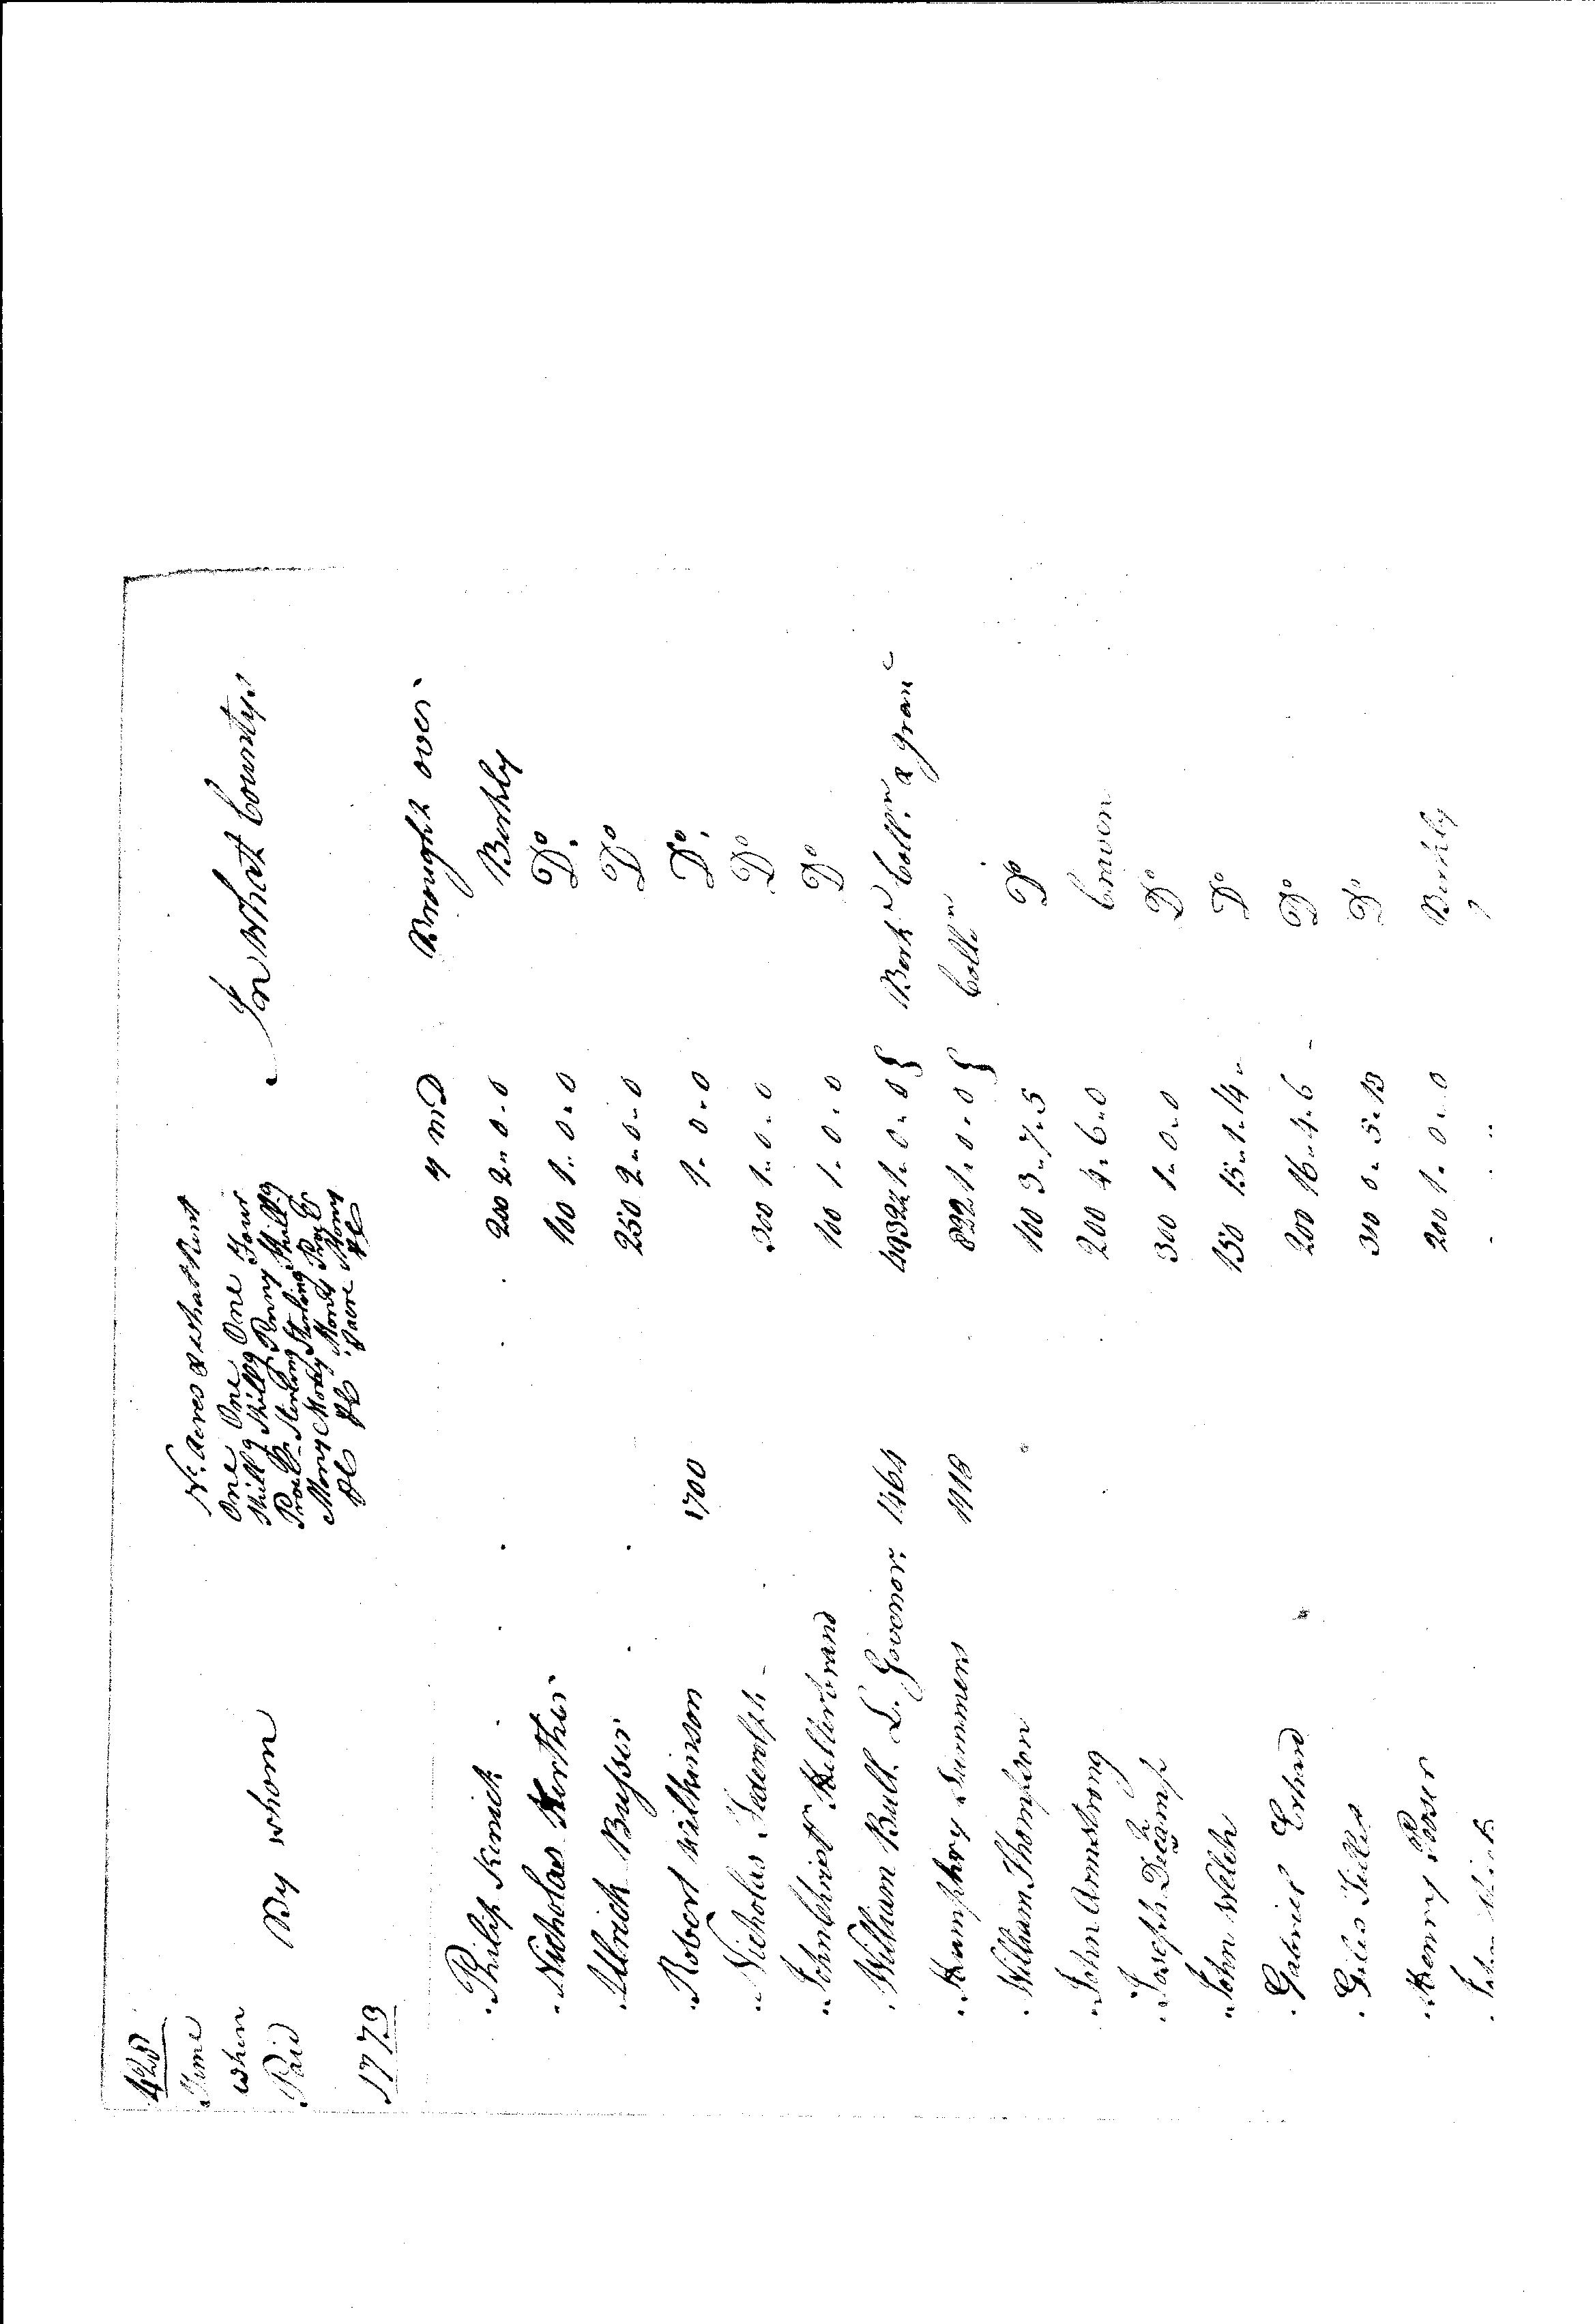 428
Time when Paid
By whom
No. Acres & what Rent
One One One Four
Shillg Shillg Penny Shillg
Procl. Sterling Sterling Procl.
Money Money Money Money
In what Countys
1773
y m D Brought over
Philip Kinick 200 2 " 0 " 0 Berkly
Nicholas Herther 100 1 " 0 " 0 Do.
Ulrich Busser 250 2 " 0 " 0 Do
Robert Wilkinson 1700 1 " 0 " 0 Do.
Nicholas Federolph 300 1 " 0 " 0 Do
John Christ Hillerbrand 100 1 " 0 " 0 Do
William Bull L. Govenor 1464 1 " 0 " 0 } Berk Coll. &
Humphry Summers 1118 832 1 " 0 " 0 } Colln
William Thompson 100 3 " 7 " 5 Do
John Armstrong 200 4 " 6 " 0 Craven
Joseph 300 1 " 0 " 0 Do
John Welch 150 15 " 1 " 14 Do
Gabriel Erhard 200 16 " 4 " 6 Do
Giles 310 0 " 5 " 13 Do
Henry 200 1 " 0 " 0 Berkly